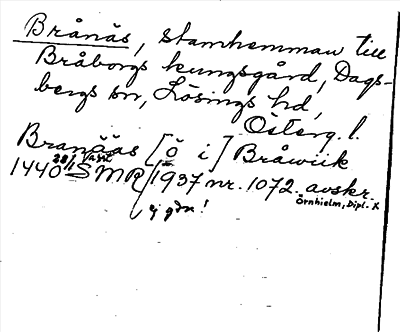 Brånäs, stamhemman till
Bråborgs kungsgård, Dags-
bergs sn, Lösings hd,
Österg. l.
Branääs [ö i] Bråwiik
1440 28/1 Vast SMR 1937 nr. 1072. avskr.
Örnhielm, Dipl. X
ej gdk!